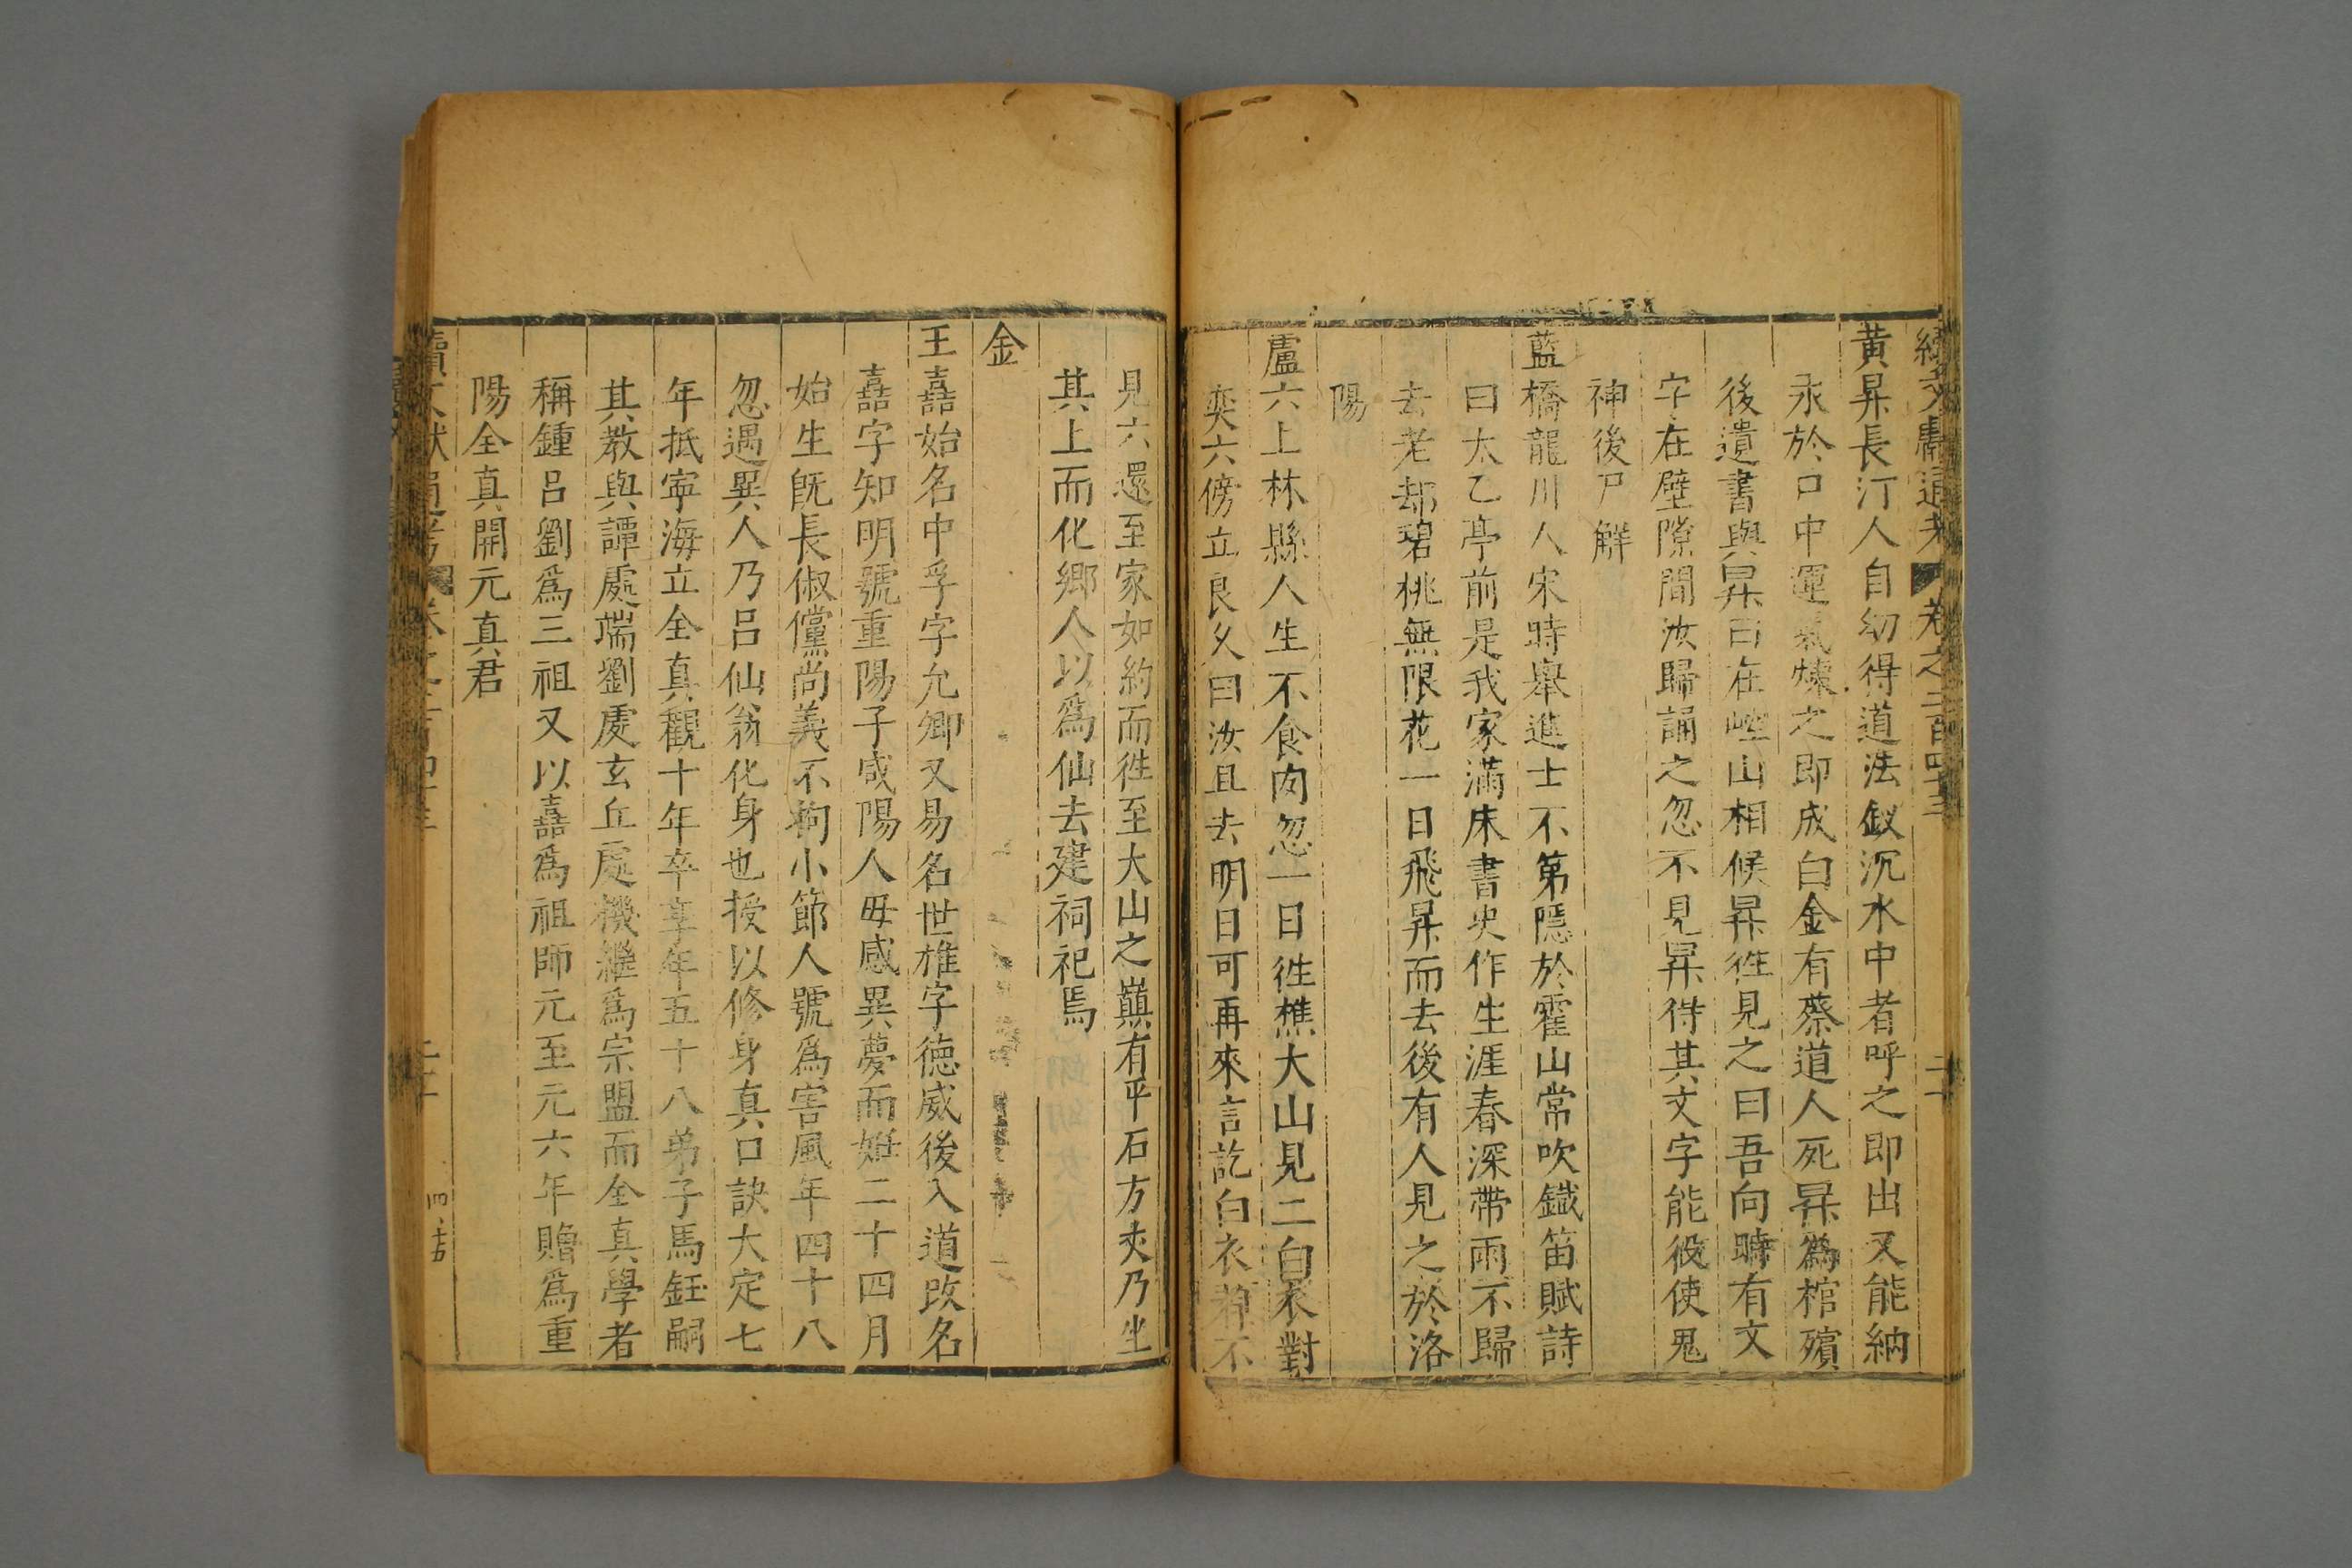 續文獻通考 卷之二百四十三
黃昇長汀人自幼得道法釵沉水中者呼之即出又能納
永於口中運氣煉之即成白金有蔡道人死昇為棺殯
後遺書與昇曰在崆山相候昇徃見之曰吾向時有文
字在壁隙間汝歸誦之忽不見昇待其文字能役使鬼
神後尸解
藍橋龍川人宋時舉進士不第隱於霍山常吹鐵笛賦詩
曰太乙亭前是我家滿床書史作生涯春深帶雨不歸
去老却碧桃無限花一日飛昇而去後有人見之於洛
陽
盧六上林縣人生不食肉忽一日徃樵大山見二白衣對
奕六傍立良久曰汝且去明日可再來言訖白衣 不
見六還至家如約而徃至大山之巔有平石方丈乃坐
其上而化鄉人以為仙去建祠祀焉
金
王嚞始名中孚字允卿又易名世雄字德威後入道改名
嚞字知明號重陽子咸陽人毋感異夢而娠二十四月
始生既長俶儻尚義不拘小節人號為害風年四十八
忽遇異人乃呂仙翁化身也授以修身真口訣大定七
年抵寧海立全真觀十年卒享年五十八弟子馬鈺嗣
其教與譚處端劉處玄丘處機繼為宗盟而全真學者
稱鍾呂劉為三祖又以嚞為祖師元至元六年贈為重
陽全真開元真君
續文獻通考 卷之二百四十三